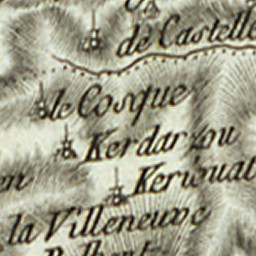 de Castelle
le Cosque
Kerdarzou
Keriouat
en
la Villeneuve